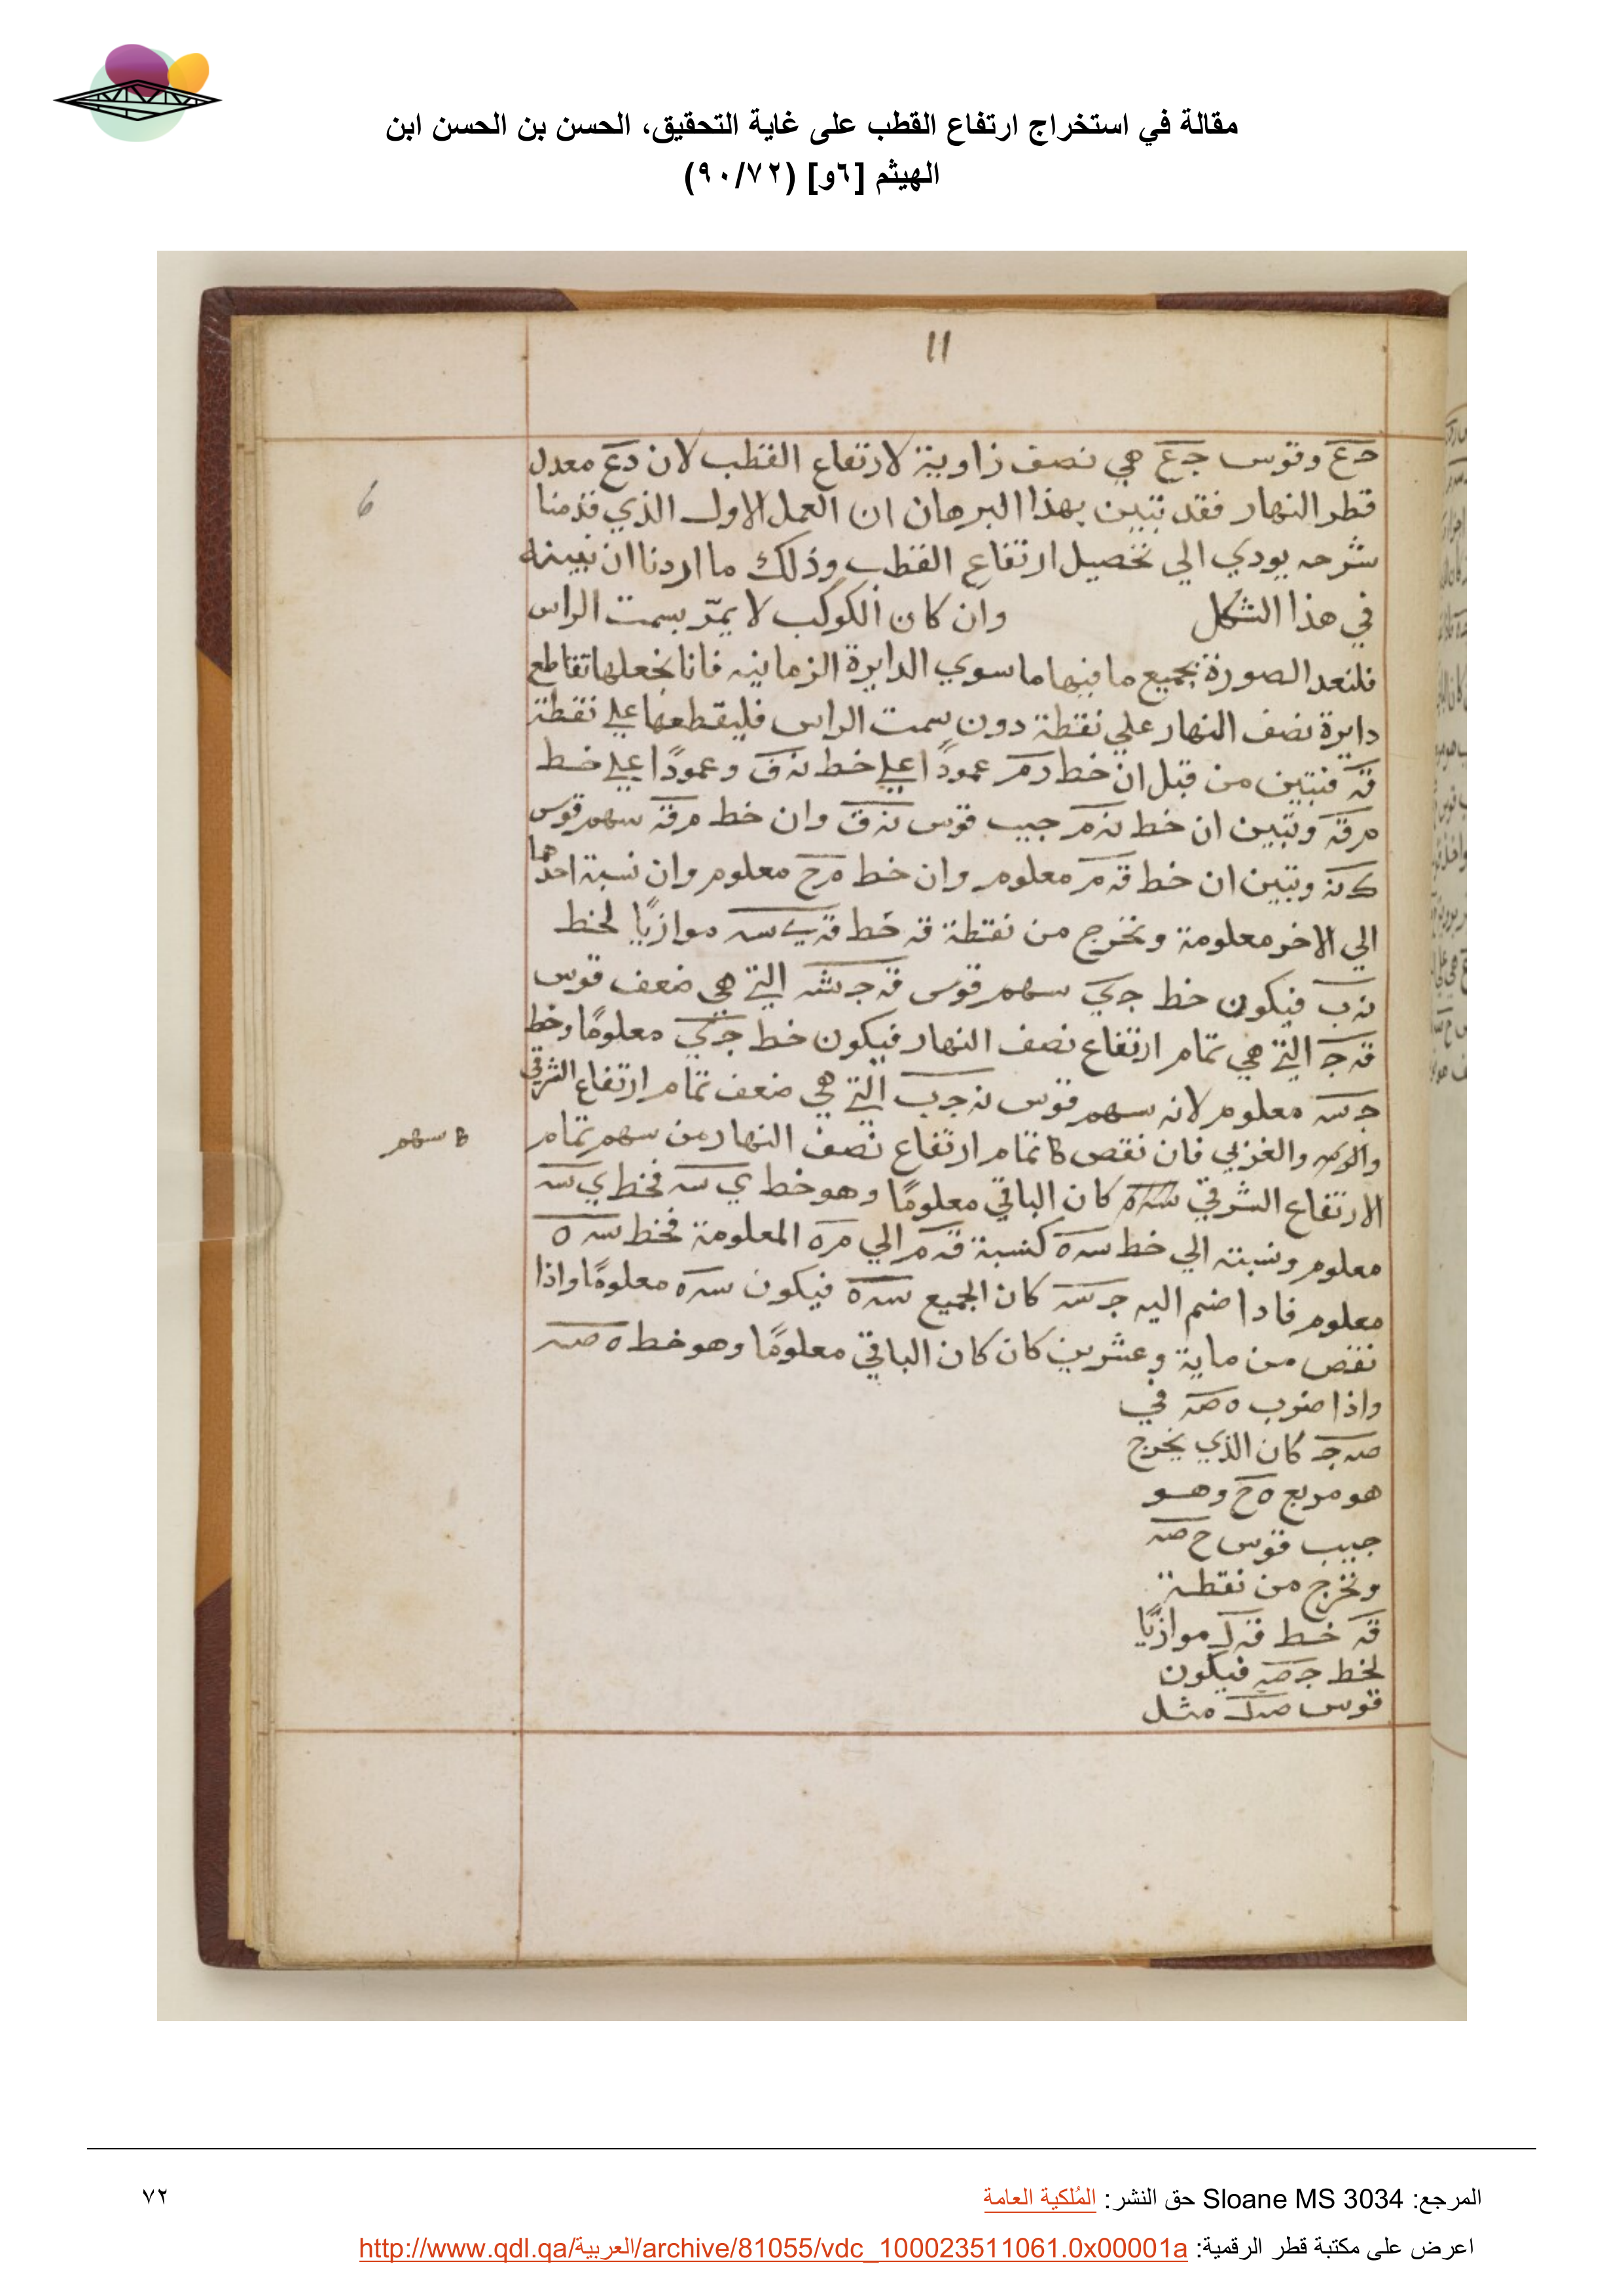 مقالة في استخراج ارتفاع القطب على غاية التحقيق، الحسن بن الحسن ابن
الهيثم [٦و] (٩٠/٧٢)
11
6
حع وقوس جع هي نصف زاوية لارتفاع القطب لان دع معدل
قطر النهار فقد تبين بهذا البرهان ان العمل الاول الذي قدمنا
شرحه يودي الي تحصيل ارتفاع القطب وذلك ما اردنا ان نبينه
في هذا الشكل وان كان الكوكب لا يمرّ بسمت الراس
فلنعد الصورة بجميع ما فيها ما سوي الدايرة الزمانيه فانا نجعلها تقاطع
دايرة نصف النهار علي نقطة دون سمت الراس فليقطعها علي نقطة
قه فنبين من قبل ان خط رم عمودًا علي خط نه ق وعمودًا علي خط
م قه ونبين ان خط نه م جيب قوس نه ق وان خط م قه سهم قوس
ك نه ونبين ان خط قه م معلوم وان خط م ح معلوم وان نسبة احدهما
الي الاخر معلومة ونخرج من نقطة قه خط قه ي سه موازيًا لخط
نه ب فيكون خط جي سهم قوس قه ج شه التي هي ضعف قوس
قه ج التي هي تمام ارتفاع نصف النهار فيكون خط جي معلومًا وخط
ج سه معلوم لانه سهم قوس نه ج ب التي هي ضعف تمام ارتفاع الشرقي
والغربي فان نقص كا تمام ارتفاع نصف النهار من سهم تمام
سهم
الارتفاع الشرقي كان الباقي معلومًا وهو خط ي سه فخط ي سه
معلوم ونسبته الي خط سه ه كنسبة قه م الي م ه المعلومة فخط سه ه
معلوم فاذا ضم اليه ج سه كان الجميع سه ه فيكون سه ه معلومًا واذا
نقص من ماية وعشرين كان كان الباقي معلومًا وهو خط ه صه
واذا ضرب ه صه في
صه ج كان الذي يخرج
هو مربع ه ح وهو
جيب قوس ح صه
ونخرج من نقطة
قه خط قه ك موازيًا
لخط ج صه فيكون
قوس صه ك مثل
المرجع: Sloane MS 3034 حق النشر: المُلكية العامة
٧٢
اعرض على مكتبة قطر الرقمية: http://www.qdl.qa/العربية/archive/81055/vdc_100023511061.0x00001a